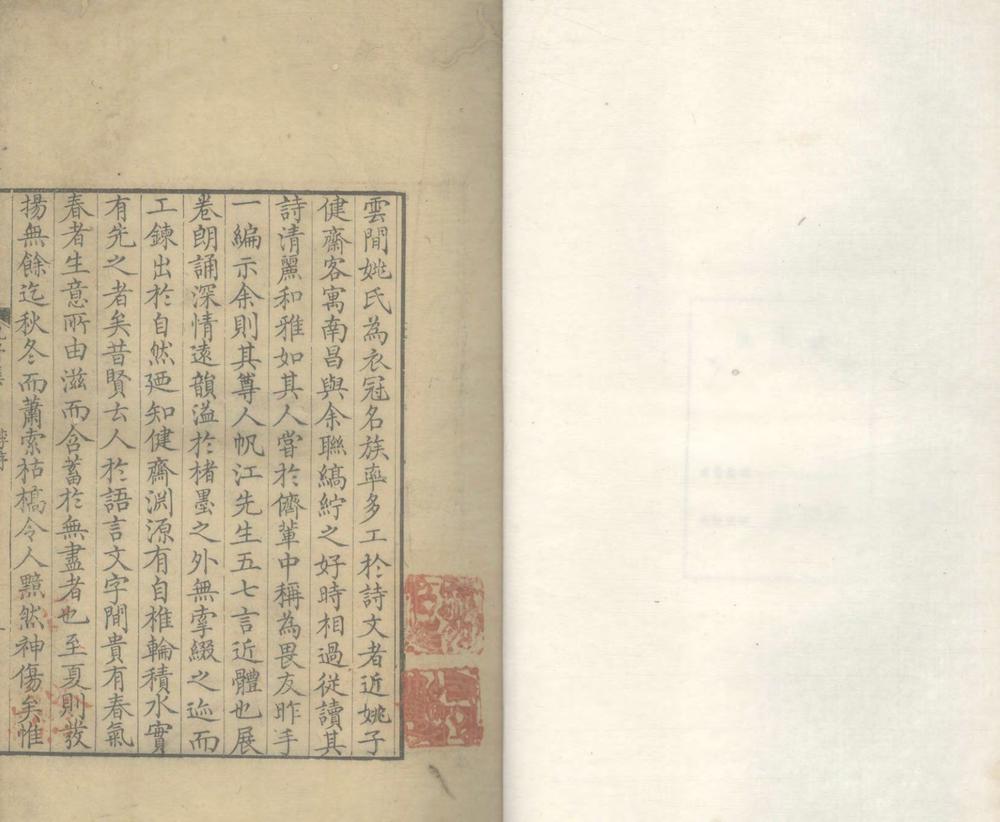 雲間姚氏為衣冠名族率多工於詩文者近姚子
健齋客寓南昌與余聯縞紵之好時相過從讀其
詩清麗和雅如其人嘗於儕輩中稱為畏友昨手
一編示余則其尊人帆江先生五七言近體也展
卷朗誦深情遠韻溢於楮墨之外無掌綴之迹而
工鍊出於自然廼知健齋淵源有自椎輪積水實
有先之者矣昔賢去人於語言文字間貴有春氣
春者生意所由滋而含蓄於無盡者也至夏則發
揚無餘迄秋冬而蕭索枯槁令人黯然神傷矣惟